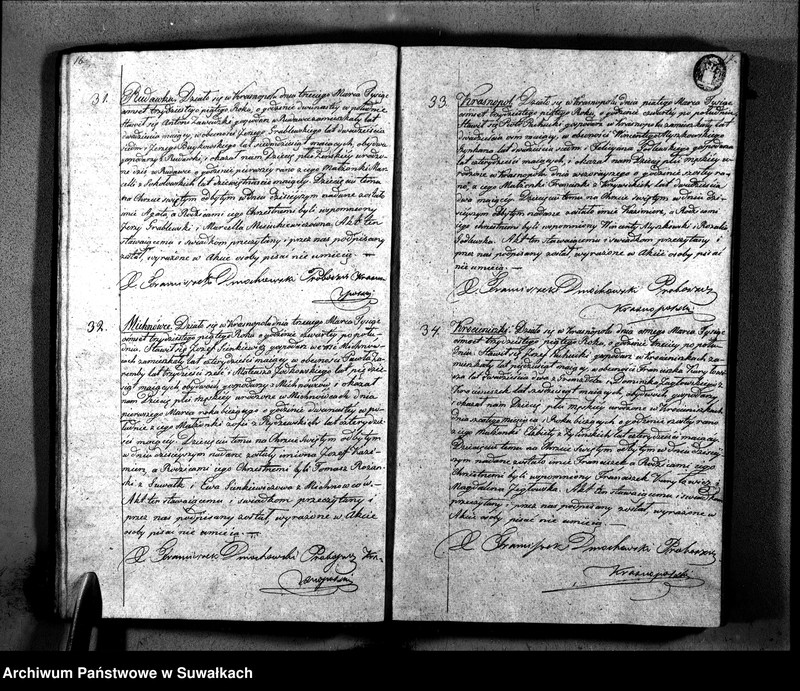 16
31. Rudawka. Działo się w Krasnopolu dnia trzeciego Marca Tysiąc
ośmset trzydziestego piątego Roku, o godzinie dwunastéy w południe
Stawił się Antoni gospodarz w Rudawce zamieszkały lat
dwadzieścia maiący, w obecności Jerzego Grablewskiego lat dwadzieścia
siedm i Jerzego lat siedmdziesiąt maiących, obydwu
gospodarzy z Rudawki, i okazał nam Dziecię płci Żeńskiéy urodzo-
ne dziś w Rudawce o godzinie pierwszéy rano z iego Małżonki Mar-
celli z Sokołowskich lat dziewiętnaście maiącéy. Dziecięciu temu
na Chrzcie Świętym odbytym w Dniu dzisieyszym nadane zosta-
ło imie Agata, a Rodzicami iego Chrzestnemi byli wspomniony
Jerzy Grablewski, i Marcella Misiukiewiczowna. Akt ten
stawaiącemu i świadkom przeczytany i przez nas podpisany
został, wyrażone w Akcie osoby pisać nie umieią.
X. Franciszek Dmochowski Proboszcz Krasno-
polski
32. Michnowce. Działo się w Krasnopolu dnia trzeciego Marca Tysiąc
ośmset trzydziestego piątego Roku o godzinie czwartéy po połu-
dniu. Stawił się Jozef Sinkiewicz gospodarz we wsi Michnow-
cach zamieszkały lat czterdzieści maiący, w obecności Pawła Za-
remby lat trzydzieści sześć i Mateusza Jodkowskiego lat pięćdzie-
siąt maiących obydwóch gospodarzy z Michnowców i okazał
nam Dziecię płci męskiéy urodzone w Michnowcach dnia
pierwszego Marca roku bieżącego o godzinie dwunastéy w po-
łudnie z iego Małżonki Zofii z Rydzewskich lat czterdzie-
ści maiącéy. Dziecięciu temu na Chrzcie Świętym odbytym
w dniu dzisieyszym nadane zostały imiona Jozef Kazi-
mierz, a Rodzicami iego Chrzestnemi byli Tomasz
z Suwałk i Ewa Sinkiewiczowa z Michnowców.
Akt ten stawaiącemu i świadkom przeczytany i
przez nas podpisany został wyrażone w Akcie
osoby pisać nie umieią.
X. Franciszek Dmochowski Proboszcz Kra-
snopolski
33. Krasnopol. Działo się w Krasnopolu dnia piątego Marca Tysiąc
ośmset trzydziestego piątego Roku, o godzinie czwartéy po południu,
Stawił się Piotr gospodarz w Krasnopolu zamieszkały lat
dwadzieścia ośm maiący, w obecności Wincentego Myszkowskiego
lat dwadzieścia siedm i Felicyana Jodkowskiego gospodarza
lat czterdzieści maiących i okazał nam Dziecię płci męskiéy u-
rodzone w Krasnopolu dnia wczorayszego o godzinie szóstéy ra-
no, z iego Małżonki Franciszki z lat dwadzieścia
dwa maiącéy. Dziecięciu temu na Chrzcie świętym w dniu dzi-
sieyszym odbytym nadane zostało imie Kazimierz, a Rodzicami
iego chrzestnemi byli wspomniony Wincenty Myszkowski i Rozalia
Akt ten stawaiącemu i świadkom przeczytany i
przez nas podpisany został, wyrażone w Akcie osoby pisać
nie umieią.
X. Franciszek Dmochowski Proboszcz
Krasnopolski
34. Krucieniszki. Działo się w Krasnopolu dnia osmego Marca Tysiąc
ośmset trzydziestego piątego Roku, o godzinie trzeciéy po połu-
dniu. Stawił się Jozef gospodarz w Krucieniszkach za-
mieszkały lat pięćdziesiąt maiący, w obecności Franciszka
lat dwadzieścia dwa z i Dominika z
Krucieniszek lat sześćdziesiąt maiących obydwóch gospodarzy,
i okazał nam Dziecię płci męskiéy urodzone w Krucieniszkach
dnia szóstego miesiąca i Roku bieżących o godzinie szóstéy rano
z iego Małżonki Elżbiety z lat czterdzieści maiącéy.
Dziecięciu temu na Chrzcie Świętym odbytym w Dniu dzisiey-
szym nadane zostało imie Franciszek, a Rodzicami iego
Chrzestnemi byli wspomniony Franciszek i
Magdalena Akt ten stawaiącemu i świadkom
przeczytany i przez nas podpisany został, wyrażone w
Akcie osoby pisać nie umieią
X. Franciszek Dmochowski Proboszcz
Krasnopolski
Archiwum Państwowe w Suwałkach